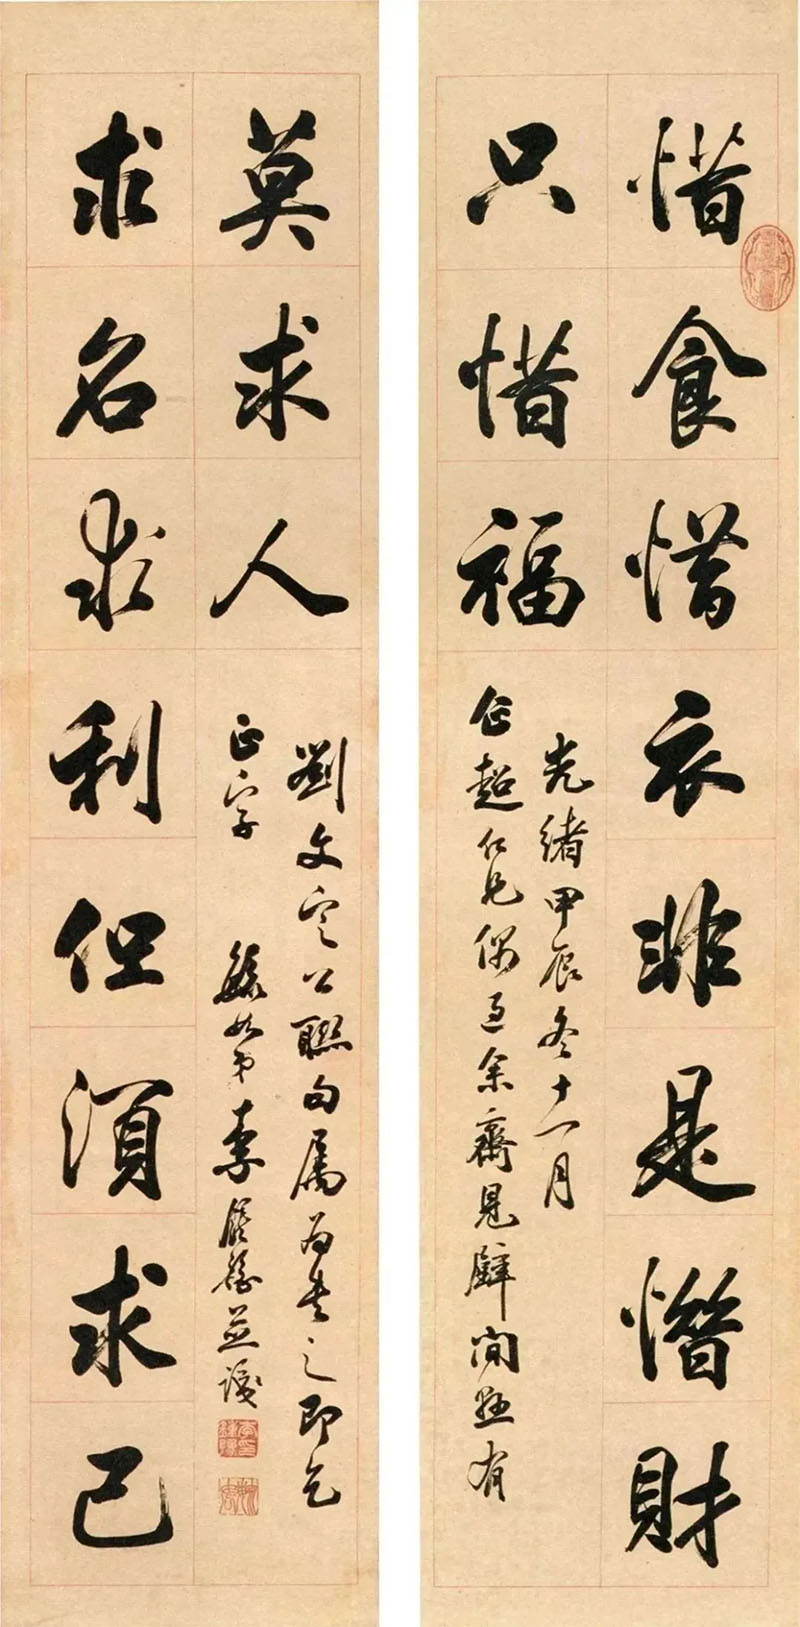 惜食惜衣非是惜財
只惜福
光緒甲辰冬十一月
企超仁兄偶過余齋見壁間懸有
求名求利但須求己
莫求人
劉文定公聯句屬為書之即乞
正字 毓如弟李鍾豫並識